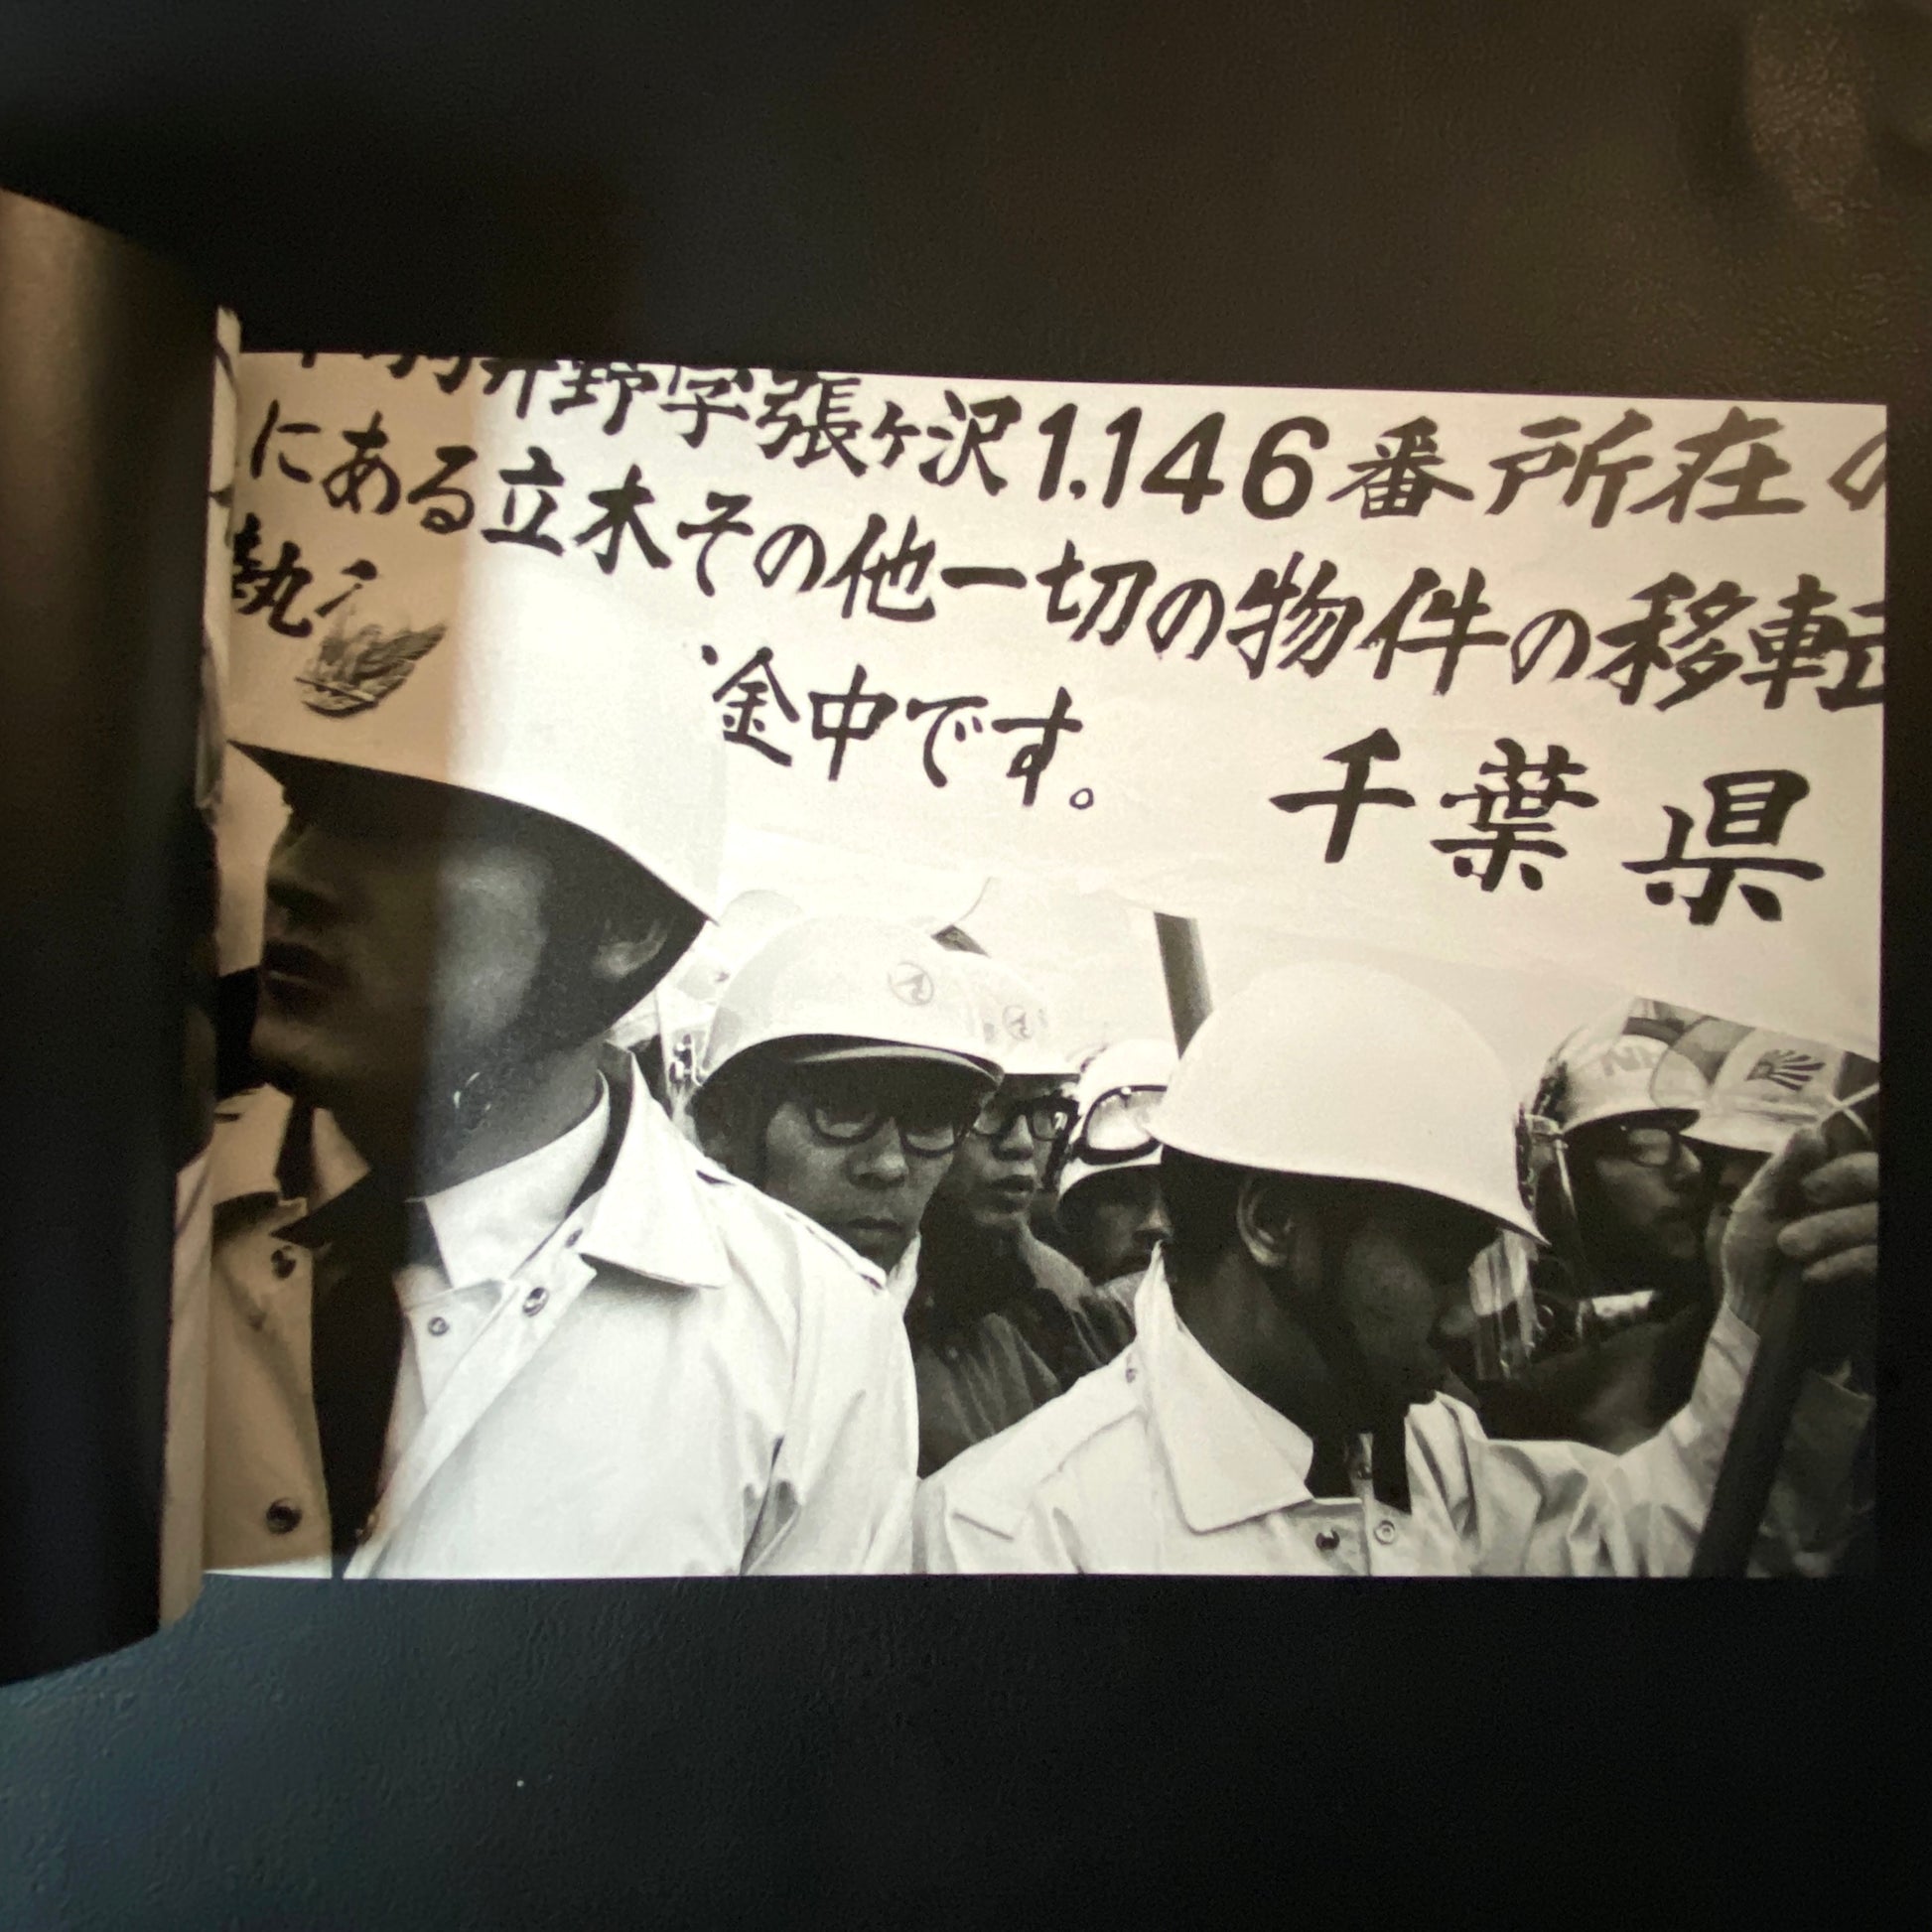 井野字張ヶ沢1.146番所在の
にある立木その他一切の物件の移転
執 金中です。
千葉県